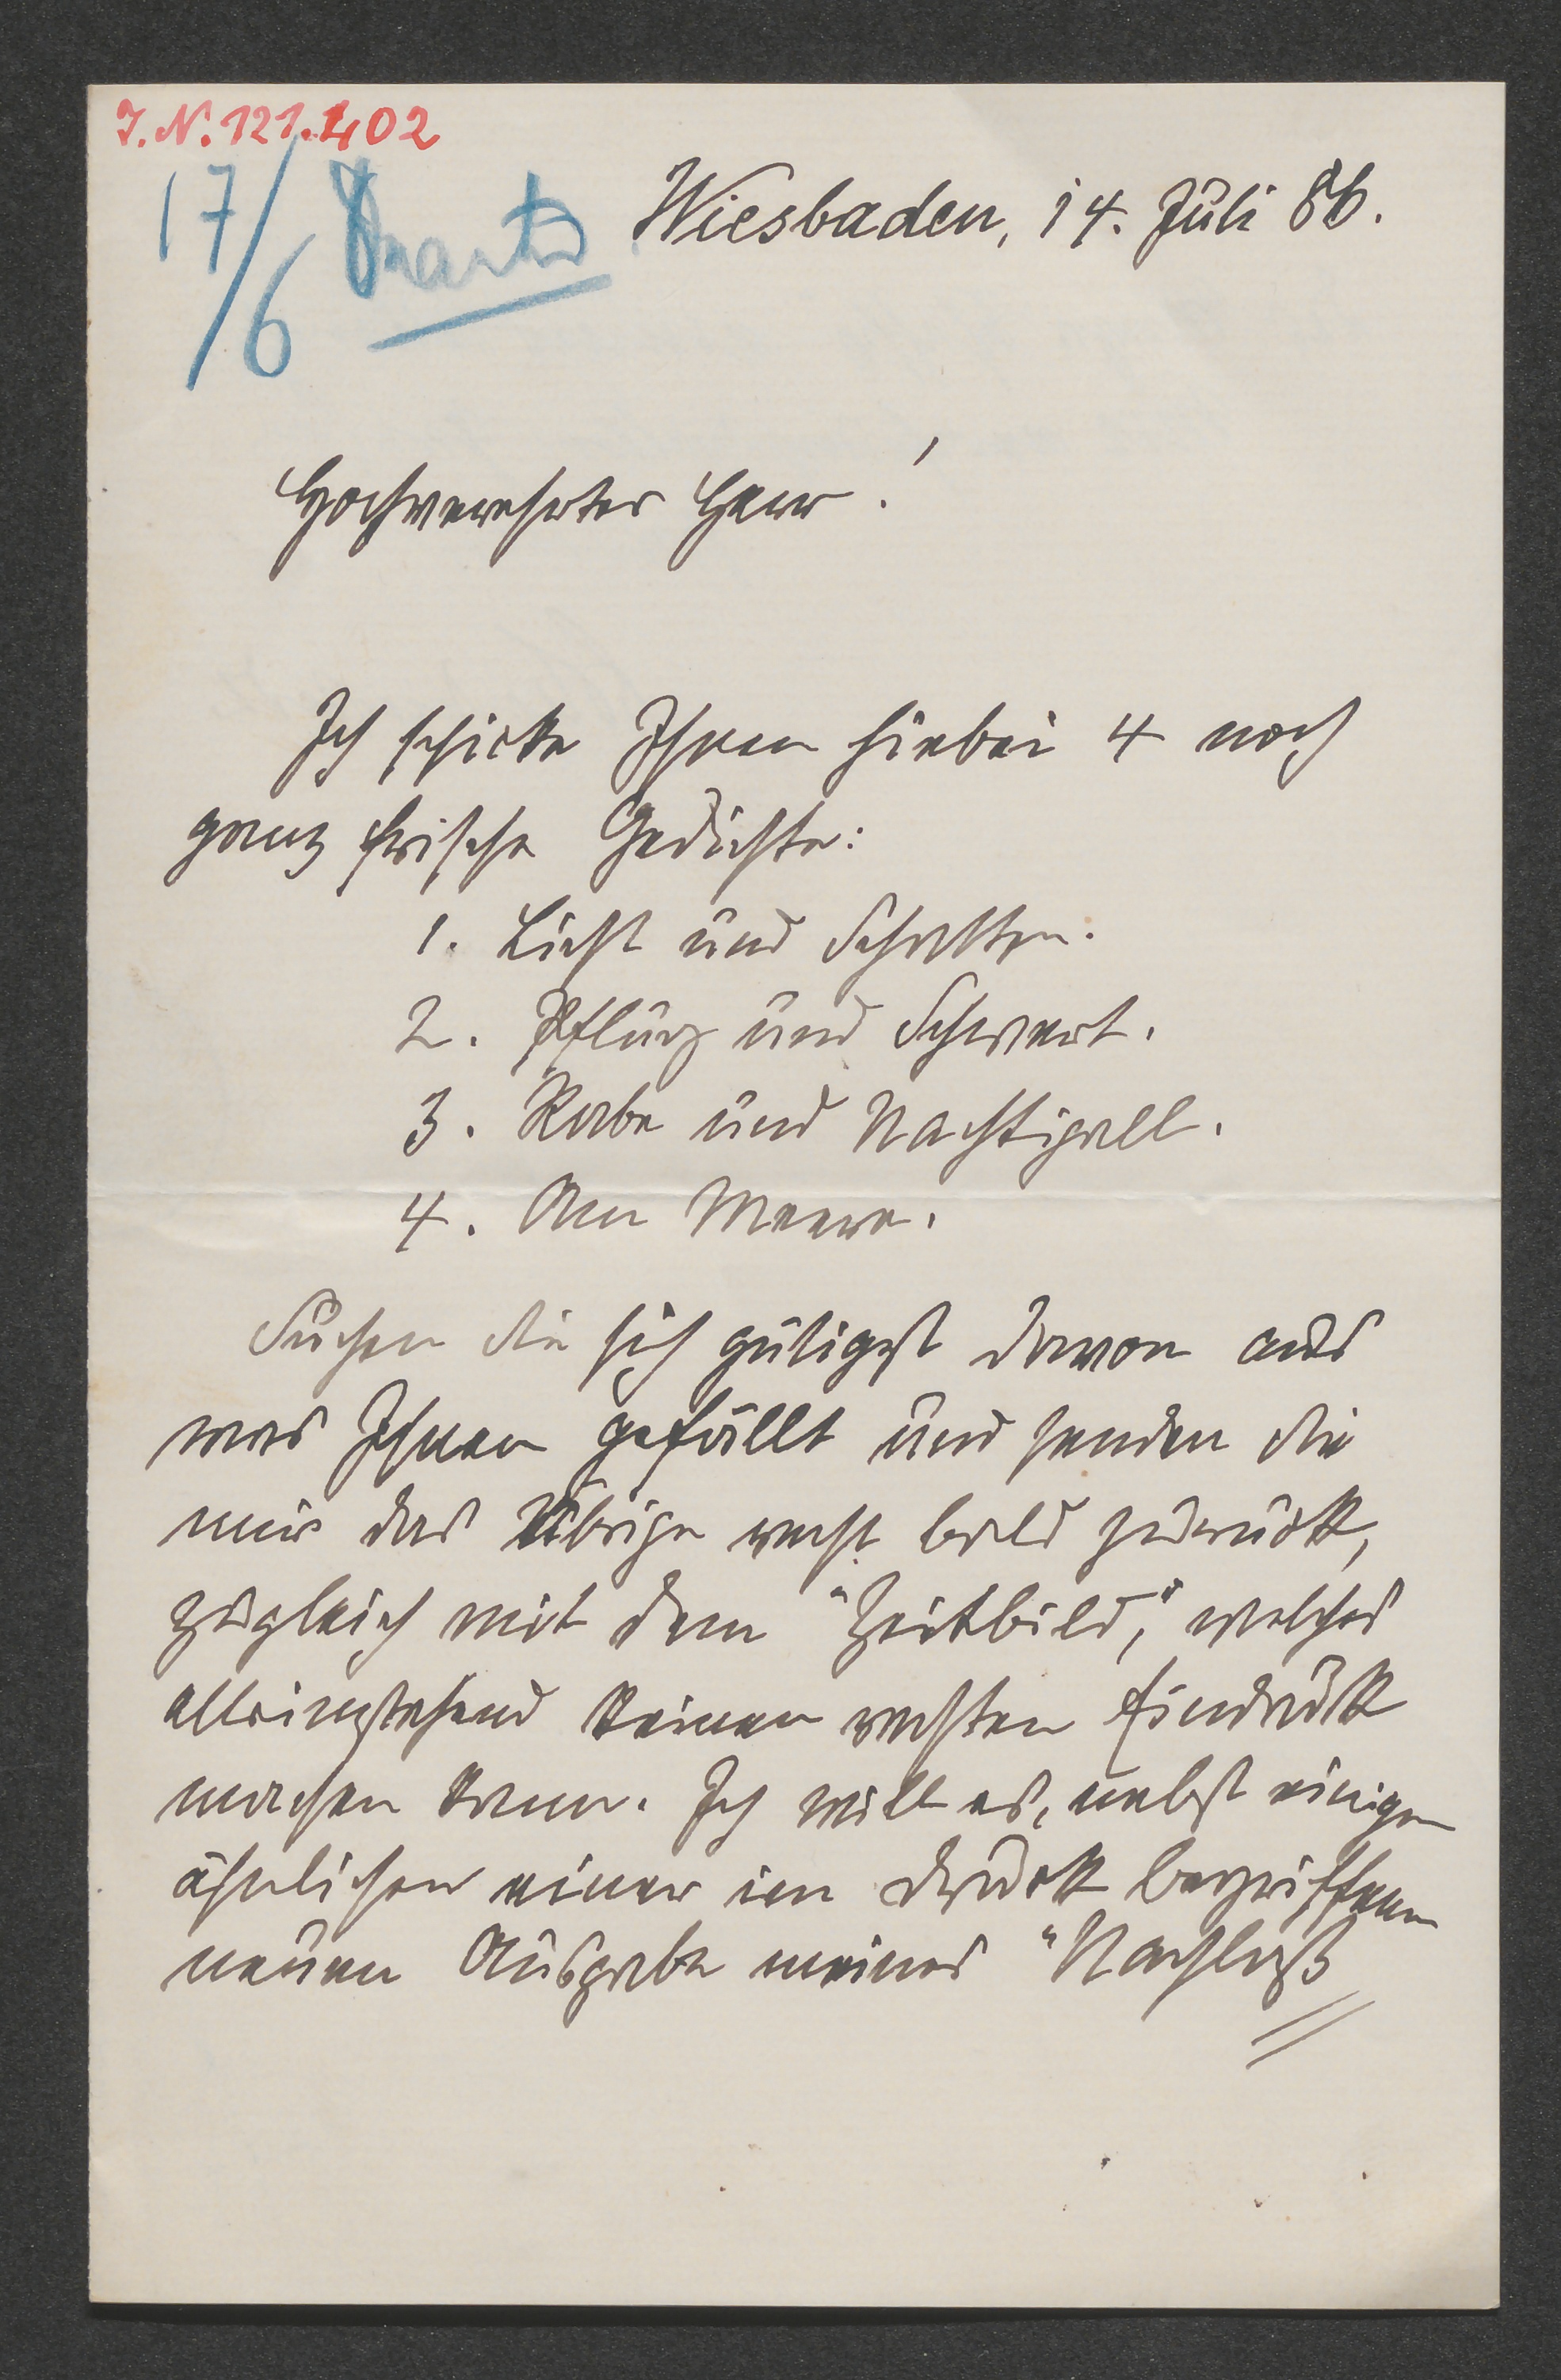 I. N. 121.402
17/6
Wiesbaden, 14. Juli 86.
Hochverehrter Herr!
Ich schicke Ihnen hiebei 4 noch
ganz frische Gedichte:
1. Licht und Schatten.
2. Pflug und Schwert.
3. Rabe und Nachtigall.
4. Am Meere.
Suchen Sie sich gütigst davon aus
was Ihnen gefällt und senden Sie
mir das Übrige recht bald zurück,
zugleich mit dem "Zeitbild," welches
alleinstehend keinen rechten Eindruck
machen kann. Ich will es, nebst einigen
ähnlichen einer im Druck begriffenen
neuen Ausgabe meines "Nachlaß